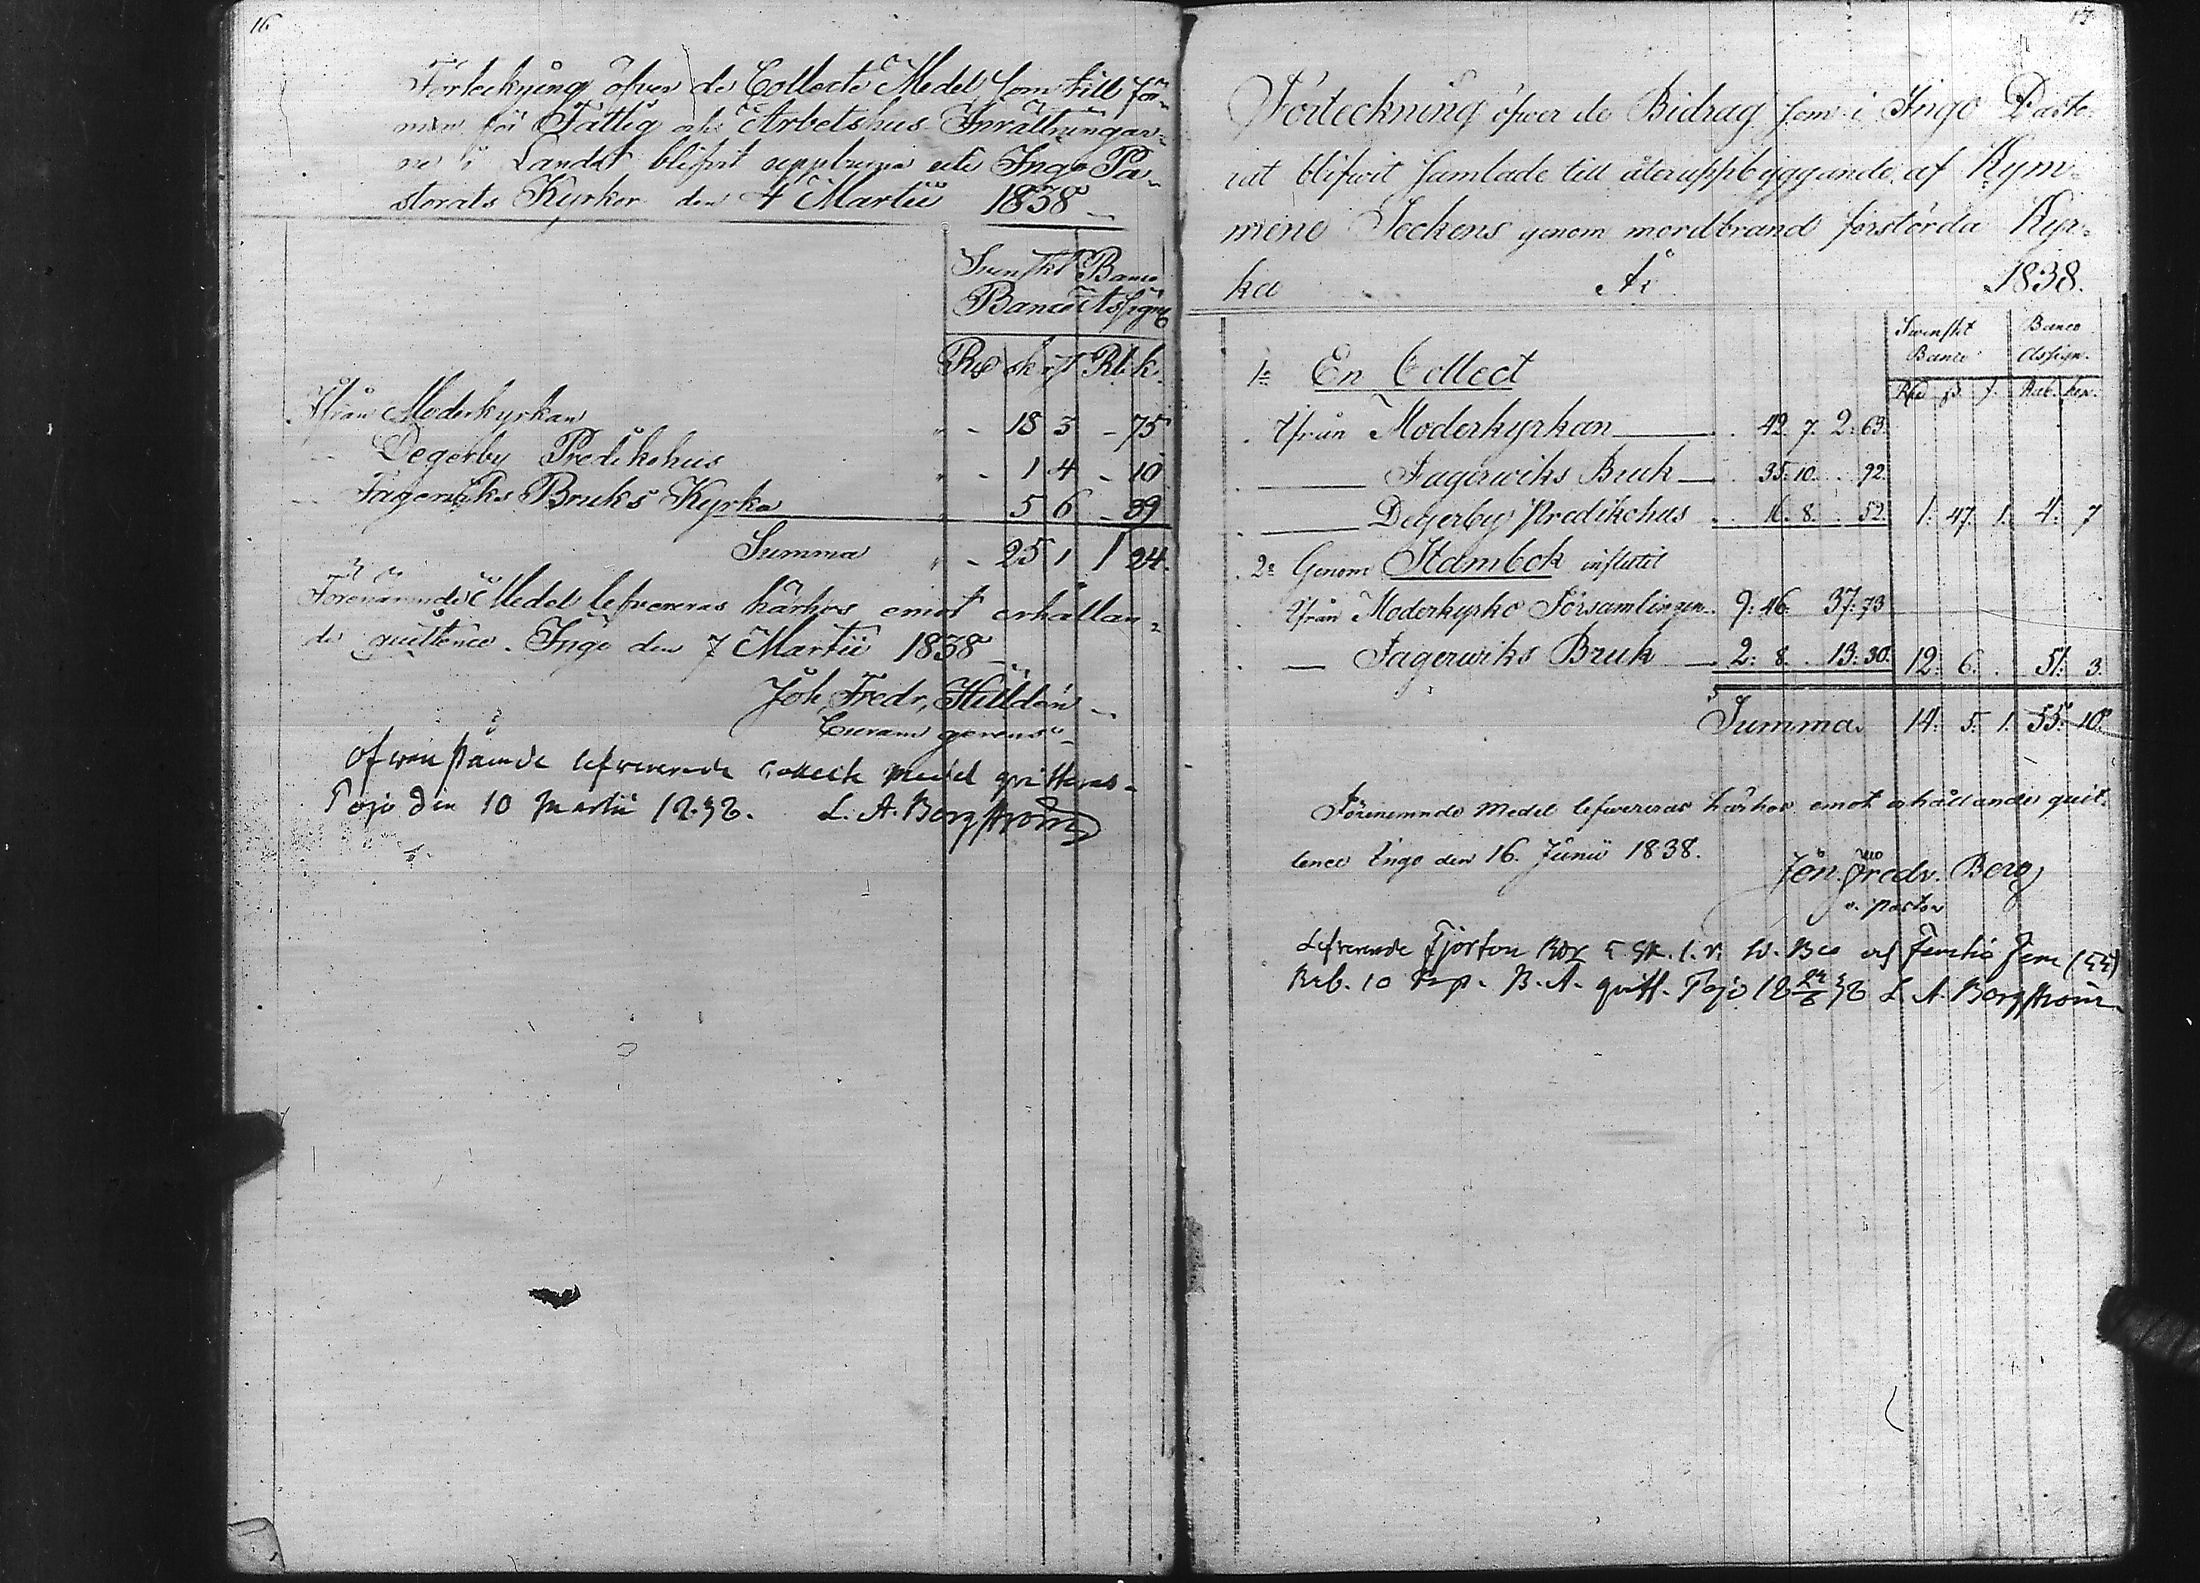 16
Förteckning öfver de Collecte Medel som till för-
mon för Fattig och Arbetshus Inrättningar-
ne i Landet blifvit uppburne uti Ingo Pa-
storats Kyrkor den 4 Martii 1838
Svenskt Banco
Banco Assign
Rd sk rst Rb. k.
Ifrån Moderkyrkan " - 18 3 - 75
Degerby Predikohus " - 1 4 - 10
Fagerviks Bruks Kyrka 5 6 - 39
Summa " - 25 1 1 24.
Förenämnde Medel lefvereras härhos emot erhållan-
de quittence. Ingo den 7 Martii 1838
Joh. Fredr. Hilldén
Curam gerens
Ofwanstående lefwererade Collect Medel qvitteras.
Pojo den 10 Martii 1838. L. A. Borgström
17
Förteckning öfver de Bidrag som i Ingo Pasto-
rat blifwit samlade till återuppbyggande af Kym-
mene Sockens genom mordbrand förstörda Kyr-
ka År 1838.
Swenskt Banco
Banco Assign.
Rd s. r. Rub. Kop.
1o En Collect
Ifrån Moderkyrkan 42. 7. 2. 63.
Fagerwiks Bruk 35. 10. . 92.
Degerby Predikohus 16. 8. . 52. 1. 47. 1. 4. 7
2o Genom Stambok influtit
Ifrån Moderkyrko Församlingen 9: 46. 37: 73
Fagerwiks Bruk 2: 8. 13: 30. 12: 6. . 51: 3.
Summa 14: 5: 1. 55: 10.
Förenemnde Medel lefwereras härhos emot erhållande quit-
tence Ingo den 16. Junii 1838.
Jon. Fredr. Berg
v. pastor
Lefrerade Fjorton Rdr 5 sk. 1. r. Bco och Femtio fem (55)
Rub. 10 Kop. B. A. qvitt. Pojo 18 24/6 38 L. A. Borgström